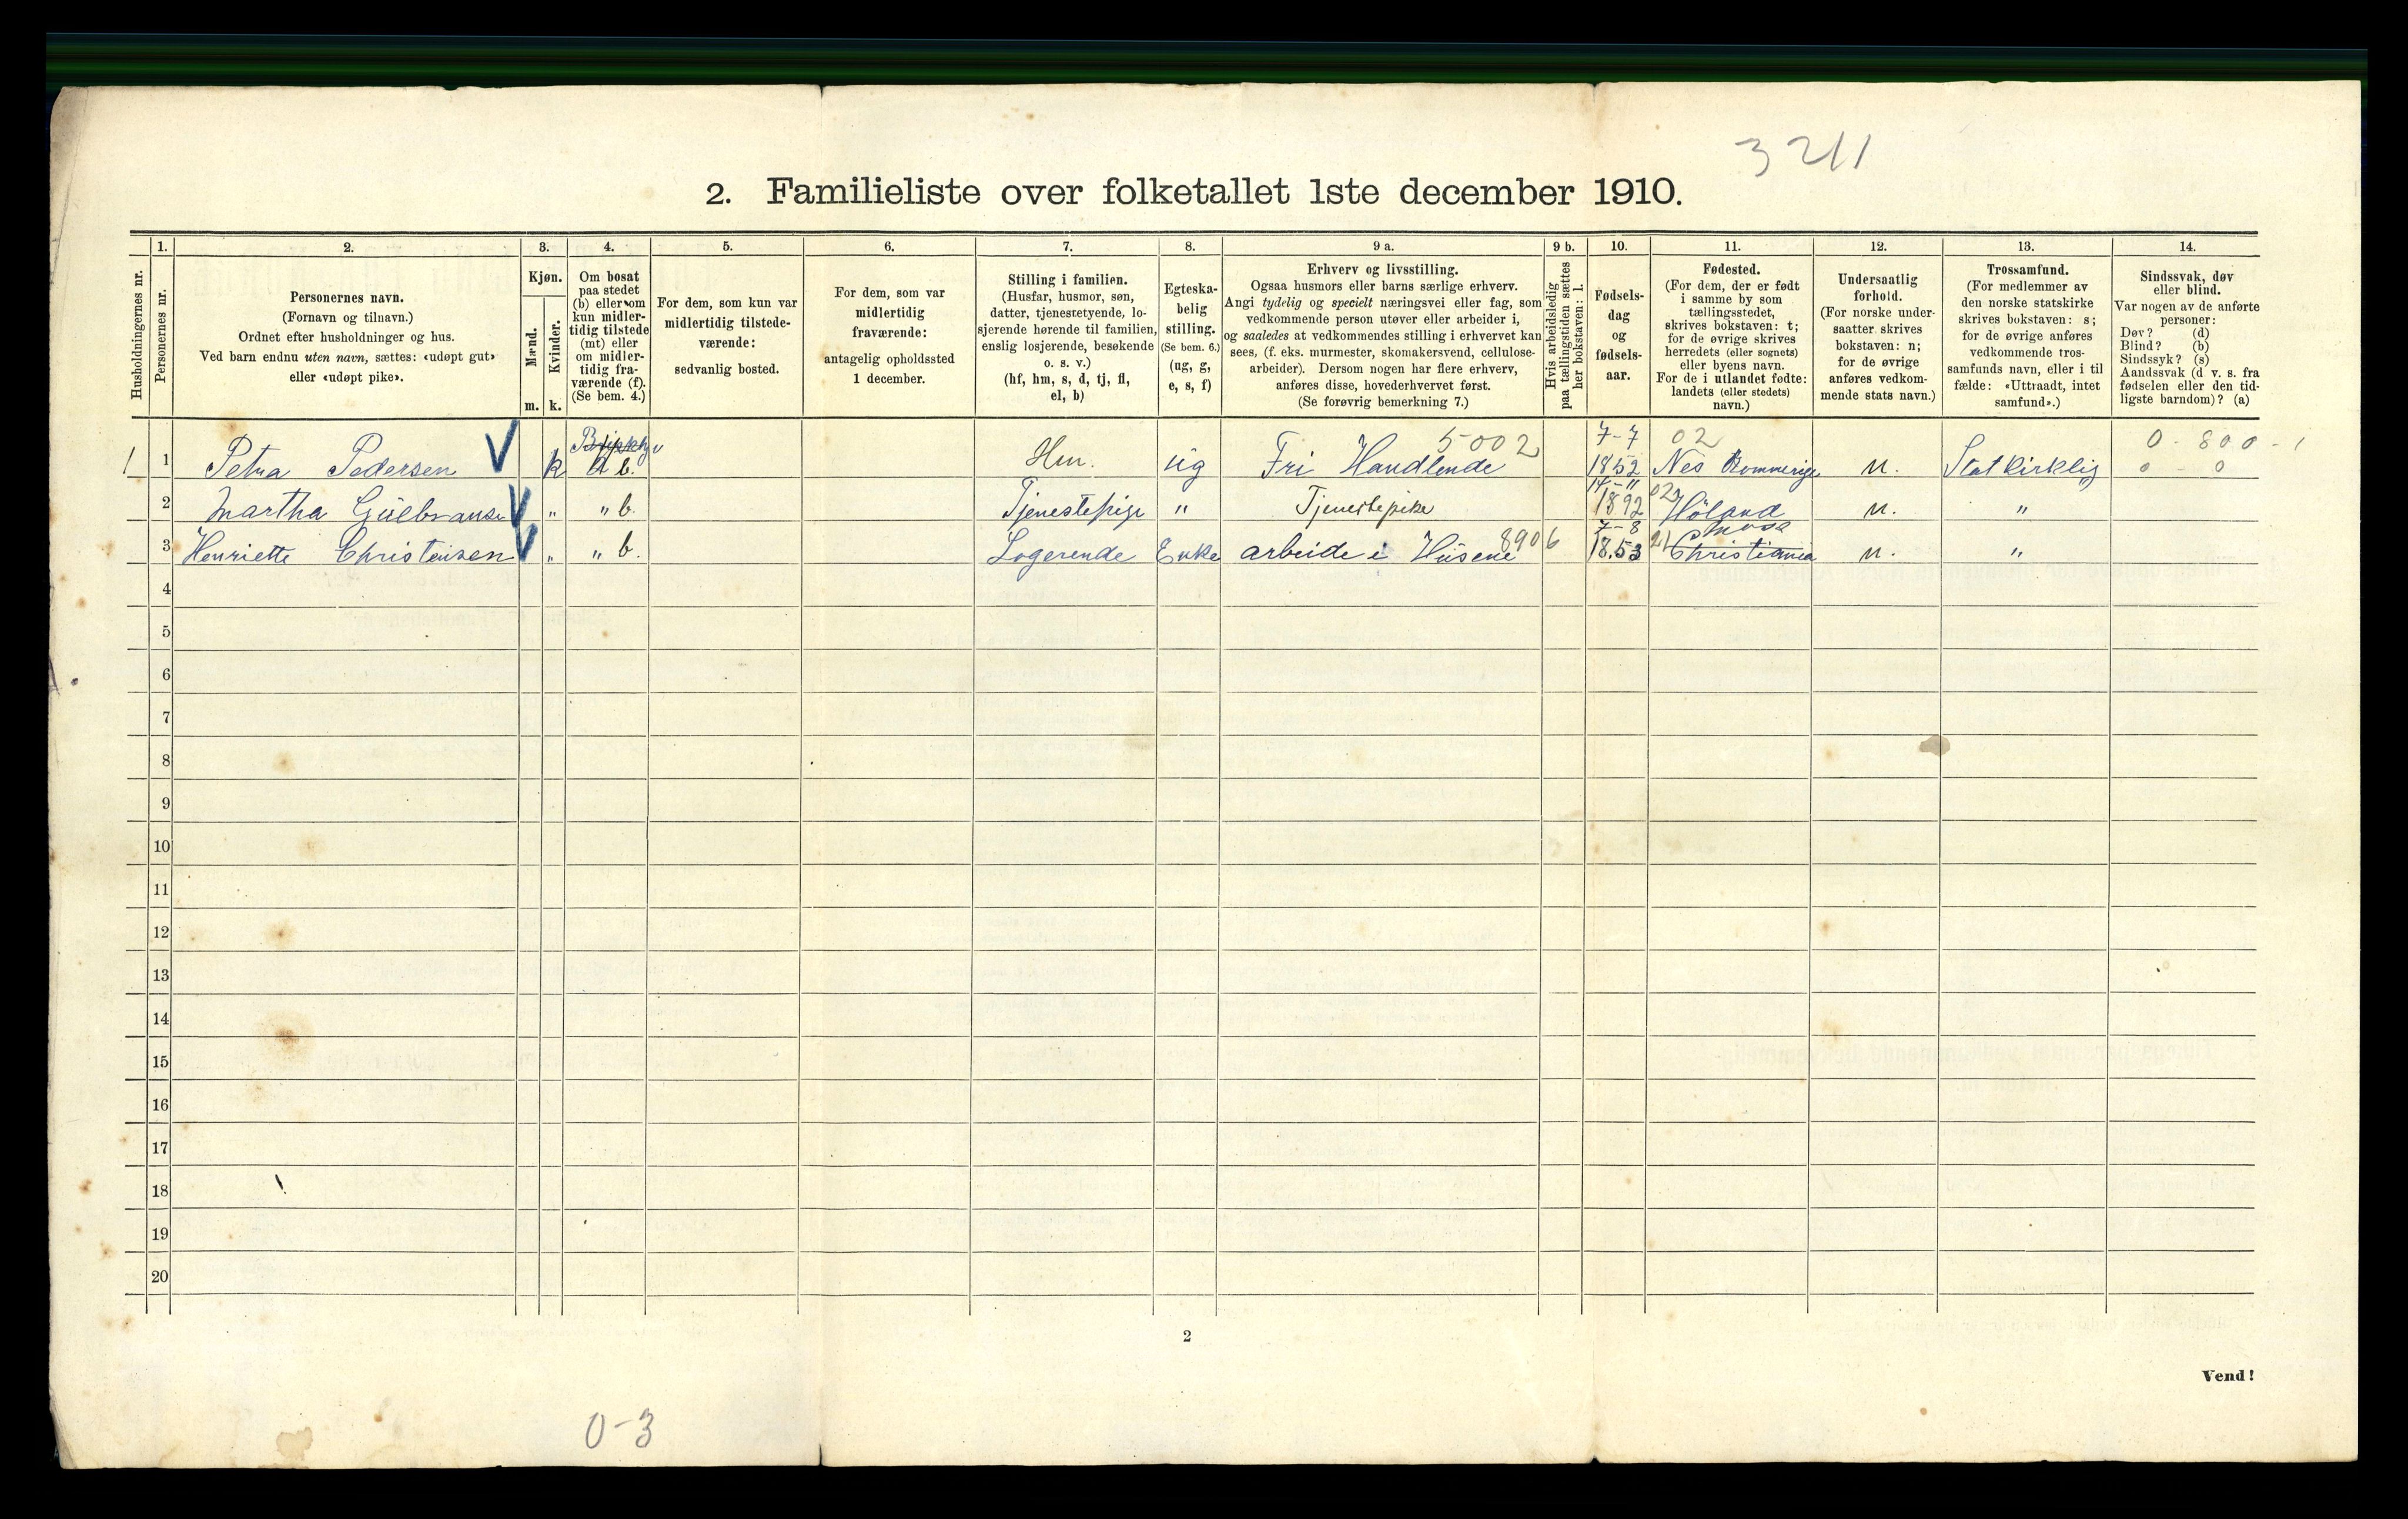 3211
2. Familieliste over folketallet 1ste december 1910.
Husholdningernes nr.
1.
Personernes nr.
2.
Personernes navn.
(Fornavn og tilnavn.)
Ordnet efter husholdninger og hus.
Ved barn endnu uten navn, sættes: «udøpt gut»
eller «udøpt pike».
3.
Kjøn.
Mænd.
Kvinder.
m. k.
4.
Om bosat
paa stedet
(b) eller om
kun midler-
tidig tilstede
(mt) eller
om midler-
tidig fra-
værende (f).
(Se bem. 4.)
5.
For dem, som kun var
midlertidig tilstede-
værende:
sedvanlig bosted.
6.
For dem, som var
midlertidig
fraværende:
antagelig opholdssted
1 december.
7.
Stilling i familien.
(Husfar, husmor, søn,
datter, tjenestetyende, lo-
sjerende hørende til familien,
enslig losjerende, besøkende
o. s. v.)
(hf, hm, s, d, tj, fl,
el, b)
8.
Egteska-
belig
stilling.
(Se bem. 6.)
(ug, g,
e, s, f)
9 a.
Erhverv og livsstilling.
Ogsaa husmors eller barns særlige erhverv.
Angi tydelig og specielt næringsvei eller fag, som
vedkommende person utøver eller arbeider i,
og saaledes at vedkommendes stilling i erhvervet kan
sees, (f. eks. murmester, skomakersvend, cellulose-
arbeider). Dersom nogen har flere erhverv,
anføres disse, hovederhvervet først.
(Se forøvrig bemerkning 7.)
9 b.
Hvis arbeidsledig
paa tællingstiden sættes
her bokstaven: l.
10.
Fødsels-
dag
og
fødsels-
aar.
11.
Fødested.
(For dem, der er født
i samme by som
tællingsstedet,
skrives bokstaven: t;
for de øvrige skrives
herredets (eller sognets)
eller byens navn.
For de i utlandet fødte:
landets (eller stedets)
navn.)
12.
Undersaatlig
forhold.
(For norske under-
saatter skrives
bokstaven: n;
for de øvrige
anføres vedkom-
mende stats navn.)
13.
Trossamfund.
(For medlemmer av
den norske statskirke
skrives bokstaven: s;
for de øvrige anføres
vedkommende tros-
samfunds navn, eller i til
fælde: «Uttraadt, intet
samfund».)
14.
Sindssvak, døv
eller blind.
Var nogen av de anførte
personer:
Døv? (d)
Blind? (b)
Sindssyk? (s)
Aandssvak (d. v. s. fra
fødselen eller den tid-
ligste barndom)? (a)
5002 7-7 02 0-800-1
1 1 Petra Pedersen V k b. Hm. ug Fri Handlende 1852 Nes Rommerige n. Statkirklig 0-0
02
2 Martha Gulbranse V " " b. Tjenestepige " Tjenestepike 1892 Höland n. "
8906 7-8 21
3 Henriette Christensen V " " b. Logerende Enke arbeide i Husene 1853 Christiania n. "
4
5
6
7
8
9
10
11
12
13
14
15
16
17
18
19
20
2
Vend!
0-3